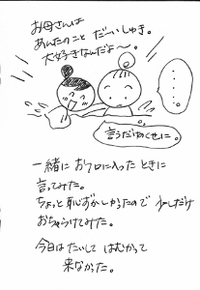 お母さんは
あんたのこと だーいしゅき。
大好きなんだよ～。
・・・・・。
言うだけのくせに。
一緒に おフロに入った ときに
言ってみた。
ちょっと恥ずかしかったので 少しだけ
おちゃらけてみた。
今日は たいして はむかって
来なかった。